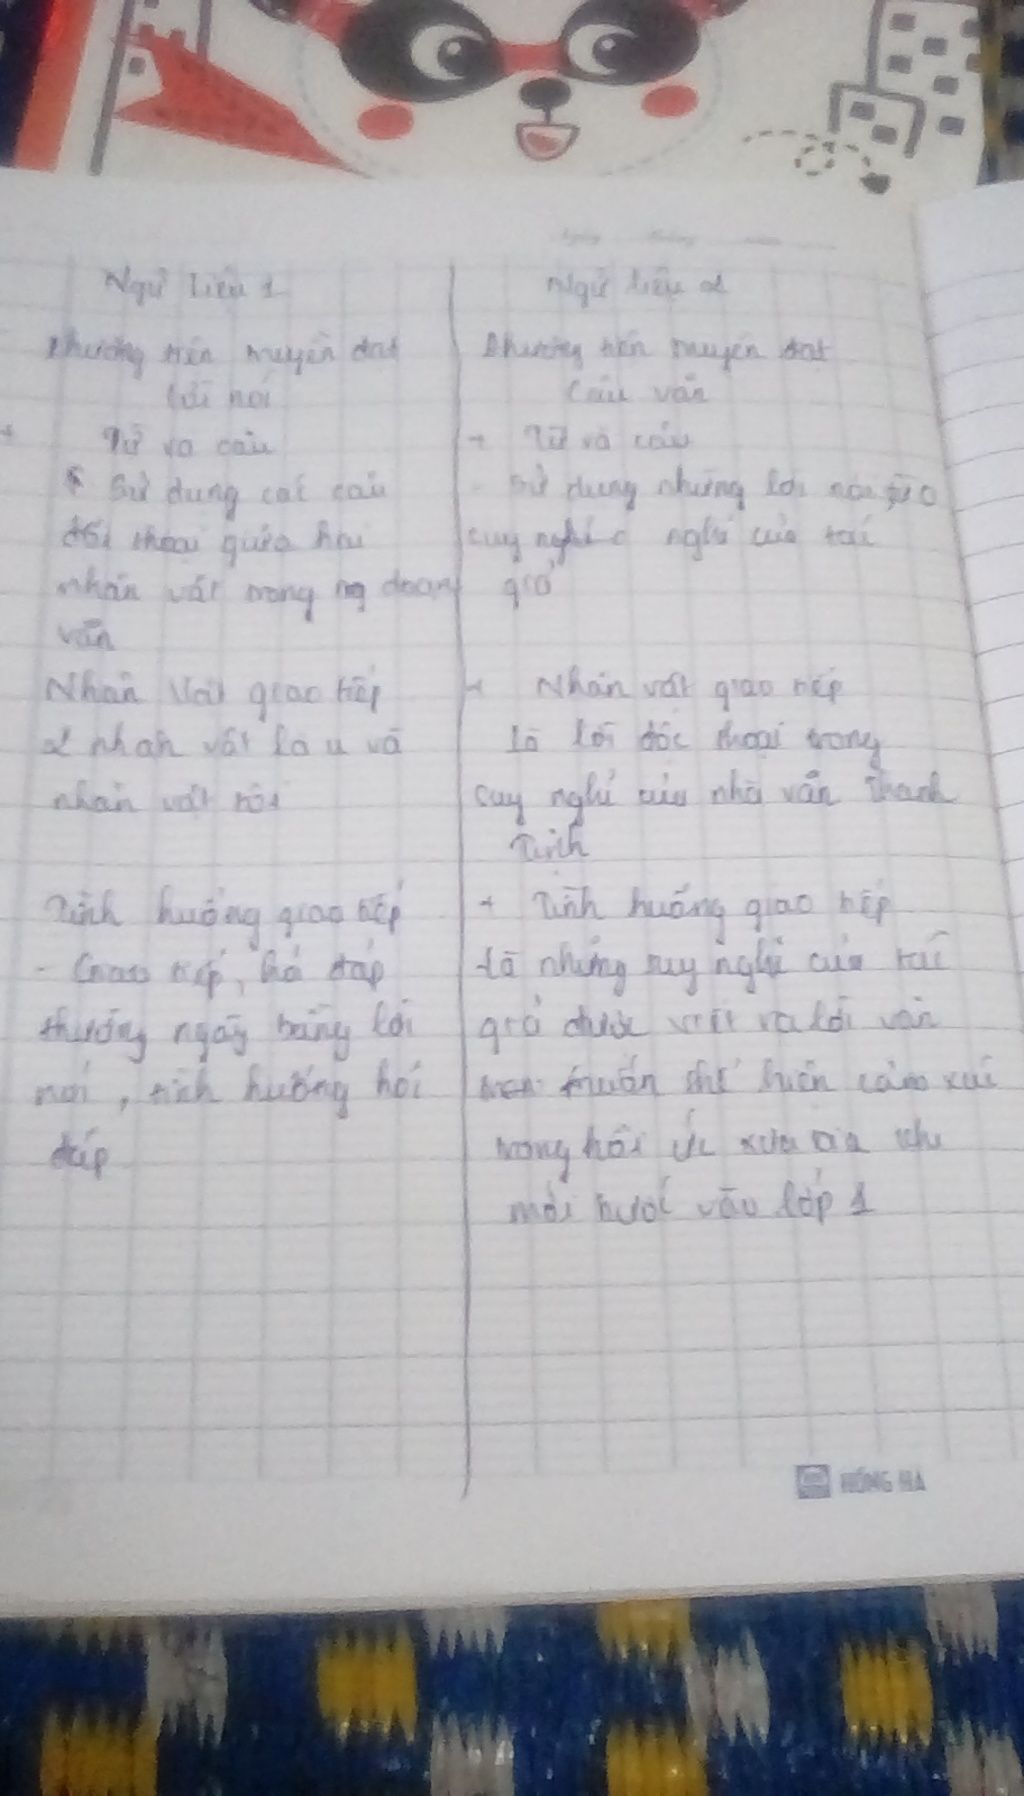 Ngữ liệu 1
Phương tiện truyền đạt
lời nói
+ Từ và câu
Sử dụng các câu
đối thoại giữa hai
nhân vật trong đoạn
văn
Nhân vật giao tiếp
2 nhân vật là u và
nhân vật tôi
Tình huống giao tiếp
- Giao tiếp, đáp
thường ngày bằng lời
nói, tình huống hỏi
đáp
Ngữ liệu 2
Phương tiện truyền đạt
Câu văn
+ Từ và câu
- Sử dụng những lời nói
suy nghĩ nghĩ của tác
giả
+ Nhân vật giao tiếp
là lời độc thoại trong
suy nghĩ của nhà văn Thanh
Tịnh
+ Tình huống giao tiếp
là những suy nghĩ của tác
giả được viết ra lời văn
muốn thể hiện cảm xúc
trong hồi ức xưa
mới bước vào lớp 1
HỒNG HÀ